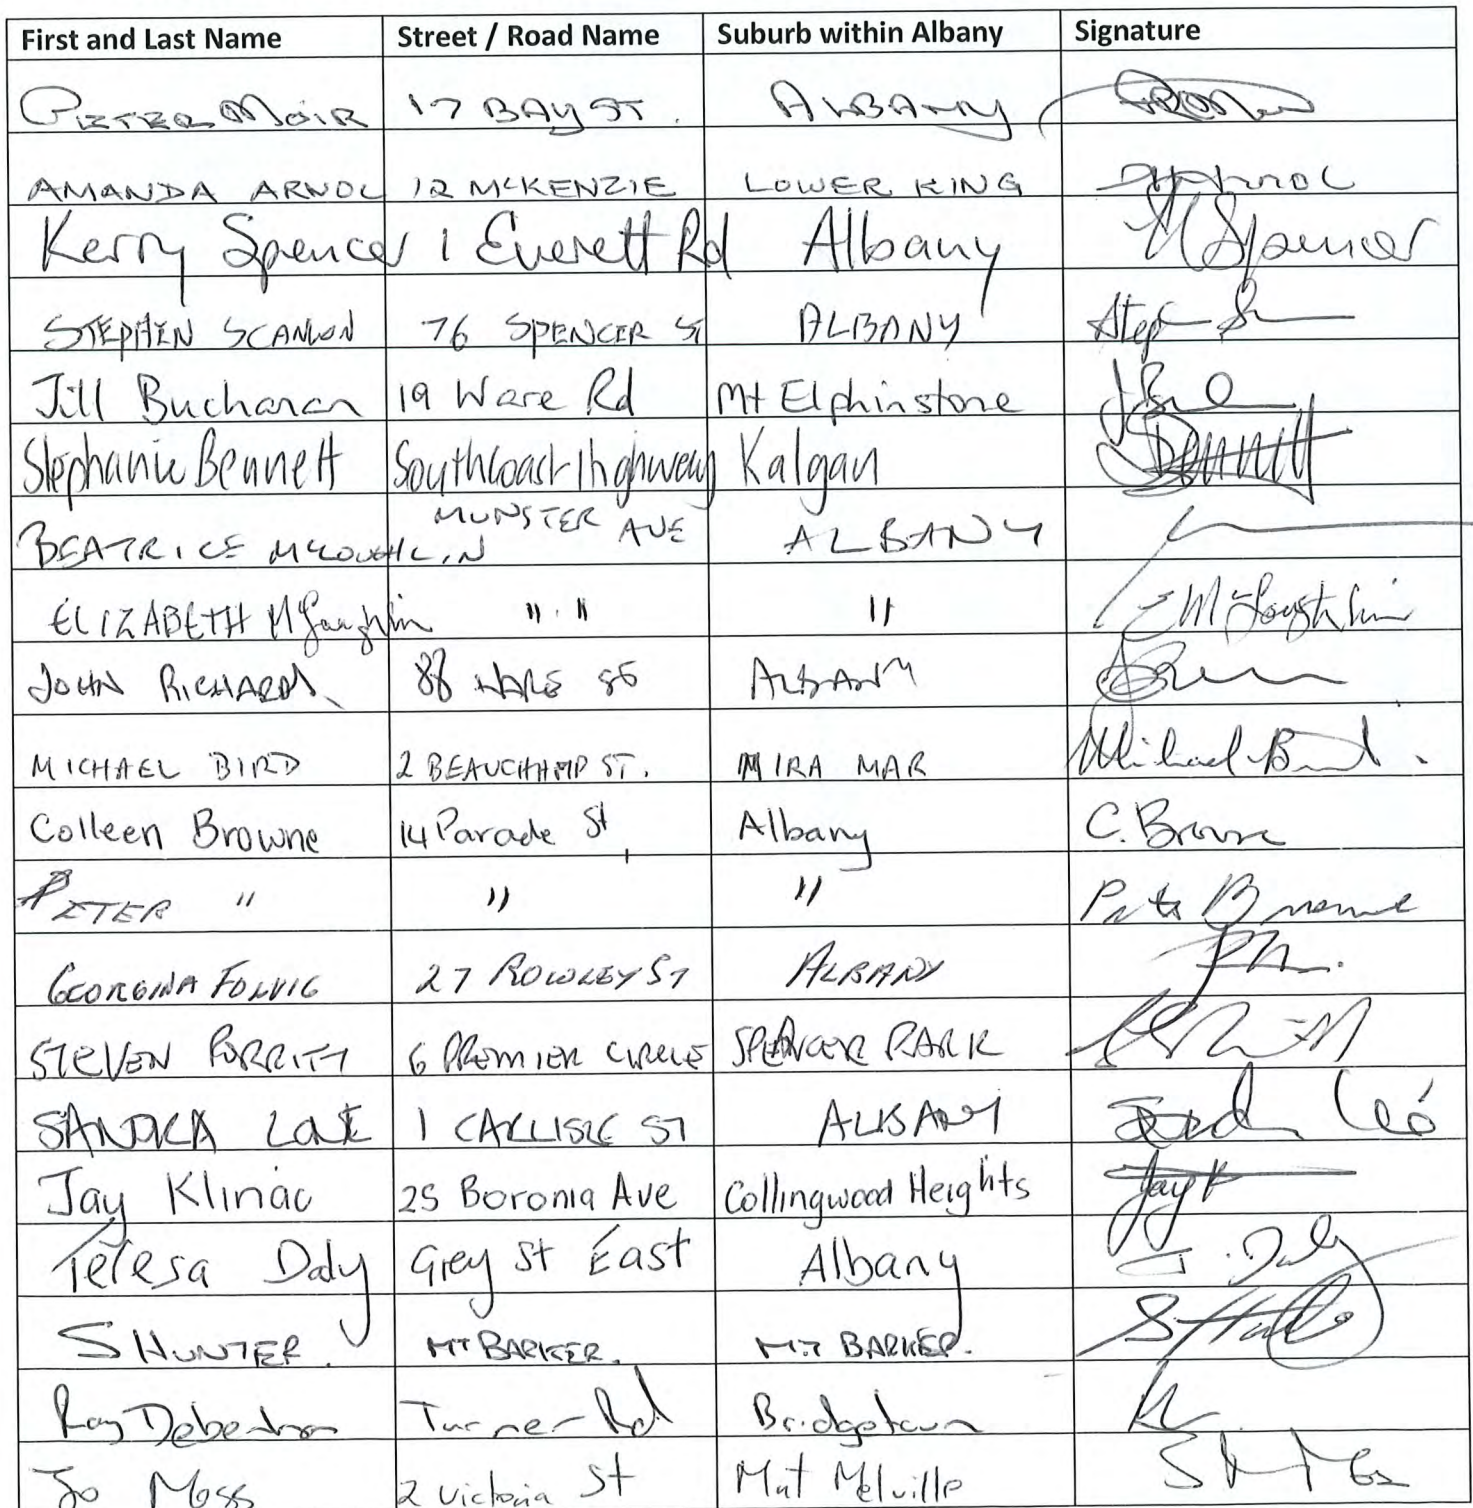 First and Last Name Street / Road Name Suburb within Albany Signature
PIETER MOIR 17 BAY ST. ALBANY
AMANDA ARNOL 12 MCKENZIE LOWER KING
Kerry Spencer 1 Everett Rd Albany K Spencer
STEPHEN SCANLON 76 SPENCER ST ALBANY
Jill Buchanan 19 Ware Rd Mt Elphinstone
Stephanie Bennett Southcoast Highway Kalgan SBennett
BEATRICE MCLOUGHLIN MUNSTER AVE ALBANY
ELIZABETH McLoughlin " " " E McLoughlin
JOHN RICHARDS 88 HARE ST ALBANY
MICHAEL BIRD 2 BEAUCHAMP ST. MIRA MAR Michael Bird.
Colleen Browne 14 Parade St, Albany C. Browne
PETER " " " Peter Browne
GEORGINA FOLVIG 27 ROWLEY ST ALBANY
STEVEN PORRITT 6 PREMIER CIRCLE SPENCER PARK
SANDRA 1 CARLISLE ST ALBANY
Jay Klinac 25 Boronia Ave Collingwood Heights Jay K
Teresa Daly Grey St East Albany T. Daly
S HUNTER. MT BARKER. MT BARKER. S Hunter
Ray Debenham Turner Rd Bridgetown
Jo Moss 2 Victoria St Mnt Melville